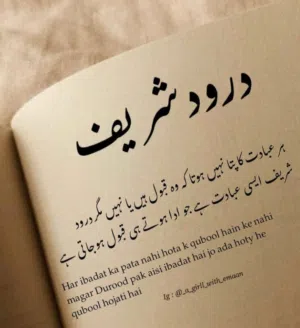 درود شریف
ہر عبادت کا پتا نہیں ہوتا کہ وہ قبول ہیں یا نہیں مگر درود
شریف ایسی عبادت ہے جو ادا ہوتے ہی قبول ہو جاتی ہے
Har ibadat ka pata nahi hota k qubool hain ke nahi
magar Durood pak aisi ibadat hai jo ada hoty he
qubool hojati hai
Ig : @_a_girl_with_emaan